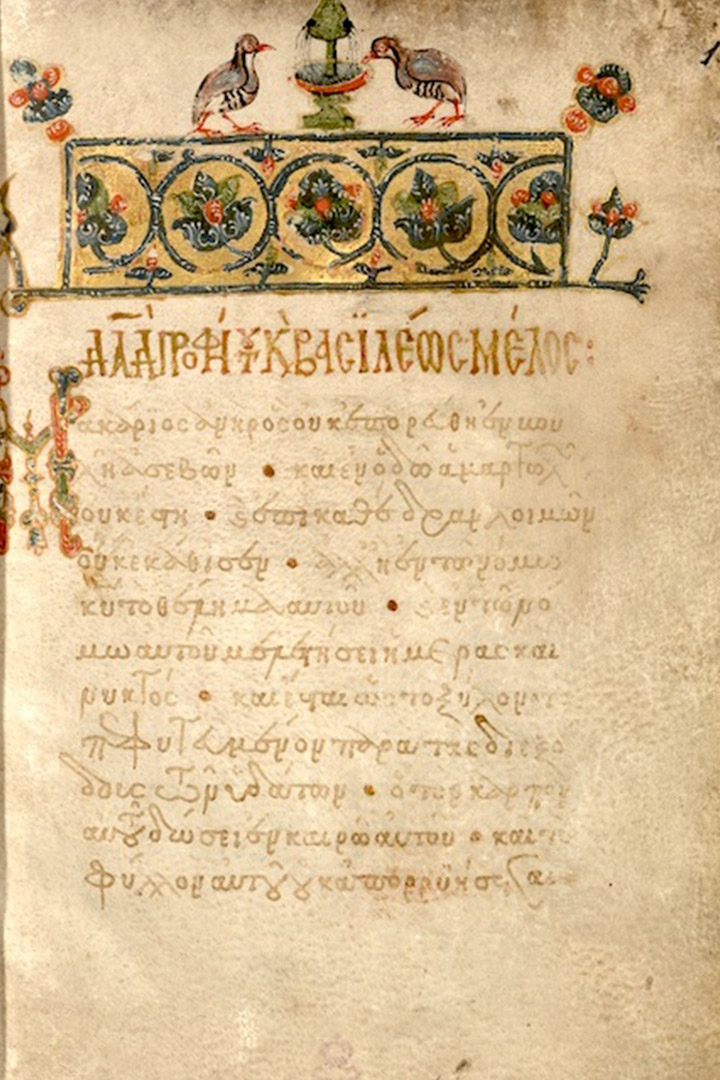 ΔΑΔ ΠΡΟΦΗΤΟΥ Κ ΒΑΣΙΛΕΩΣ ΜΕΛΟΣ:
Μακάριος ἀνὴρ ὃς οὐκ ἐπορεύθη ἐν βου
λῆ ἀσεβῶν • καὶ ἐν ὁδῶ ἁμαρτωλ
οὐκ ἔστη • καὶ ἐπι καθέδραν λοιμῶν
οὐκ ἐκάθισεν • ἀλλ ἢ ἐν τῶ νόμω
κυ τὸ θέλημα αὐτοῦ • καὶ ἐν τῶ νό
μω αὐτοῦ μελετήσει ἡμέρας καὶ
νυκτός • καὶ ἔσται ὡς τὸ ξύλον τὸ
πεφυτευμένον παρα τὰς διεξό
δους τῶν ὑδάτων • ὃ τὸν καρπὸν
αὐτοῦ δώσει ἐν καιρῶ αὐτοῦ • καὶ τὸ
φύλλον αὐτοῦ οὐκ ἀπορρυήσεται